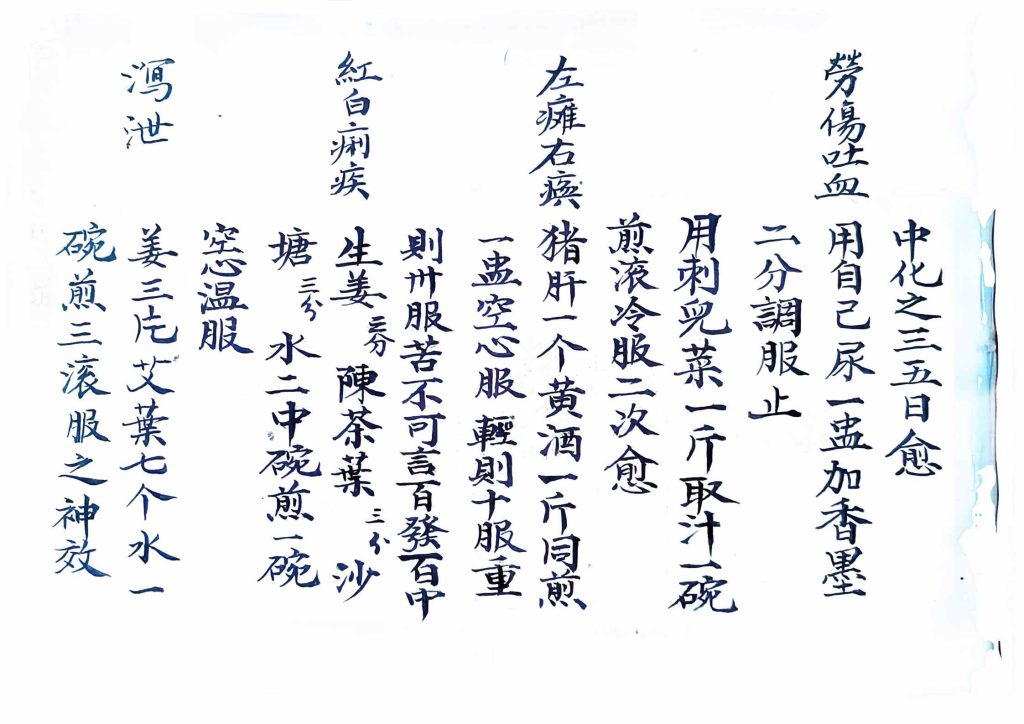 中化之三五日愈
勞傷吐血
用自己尿一盅加香墨
二分調服止
用刺兒菜一斤取汁一碗
煎滚冷服二次愈
左癱右瘓
猪肝一个黄酒一斤同煎
一盅空心服輕則十服重
則卅服苦不可言百發百中
紅白痢疾
生姜三分 陳茶葉三分 沙
塘三分 水二中碗煎一碗
空心温服
瀉泄
姜三片艾葉七个水一
碗煎三滚服之神效